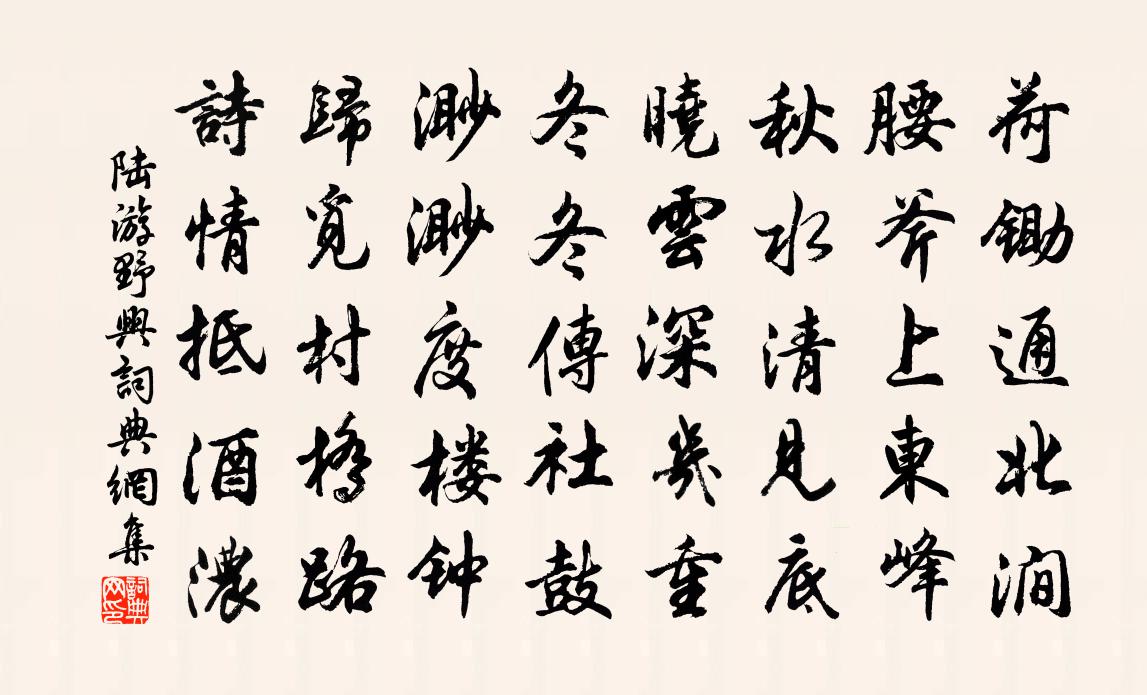 荷鋤通北澗
腰斧上東峰
秋水清見底
曉雲深幾重
冬冬傳社鼓
渺渺度楼钟
歸覓村橋路
詩情抵酒濃
陆游野興詞典網集
詞典网印